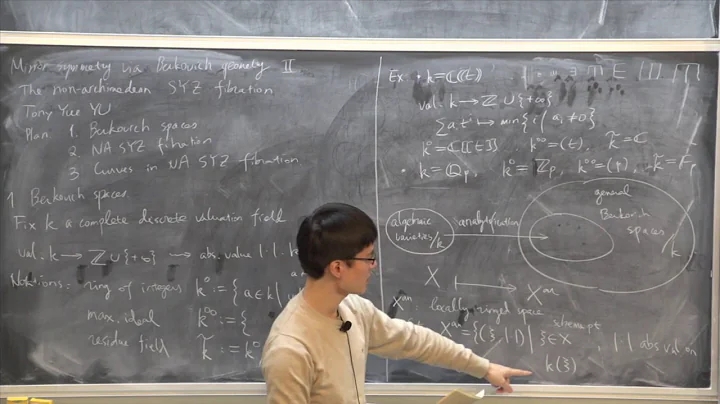 Mirror symmetry via Berkovich geometry II
The non-archimedean SYZ fibration
Tony Yue YU
Plan 1. Berkovich spaces
2. NA SYZ fibration
3. Curves in NA SYZ fibration
1 Berkovich spaces
Fix k a complete discrete valuation field
val: k → ℤ ∪ {+∞} ⇝ abs. value |·|
Notations: ring of integers k° := {a ∈ k |
max. ideal k°° := {
residue field k̃ := k°
Ex • k = ℂ((t))
val: k → ℤ ∪ {+∞}
∑ aᵢ tⁱ ↦ min{i | aᵢ ≠ 0}
k° = ℂ[[t]] k°° = (t), k̃ = ℂ
• k = ℚₚ, k° = ℤₚ, k°° = (p), k̃ = Fₚ
algebraic varieties/k
analytification
general Berkovich spaces /k
X ↦ Xᵃⁿ
Xᵃⁿ: locally ringed space
scheme pt
Xᵃⁿ = {(ξ, |·|) | ξ ∈ X , |·| abs val on
k(ξ)